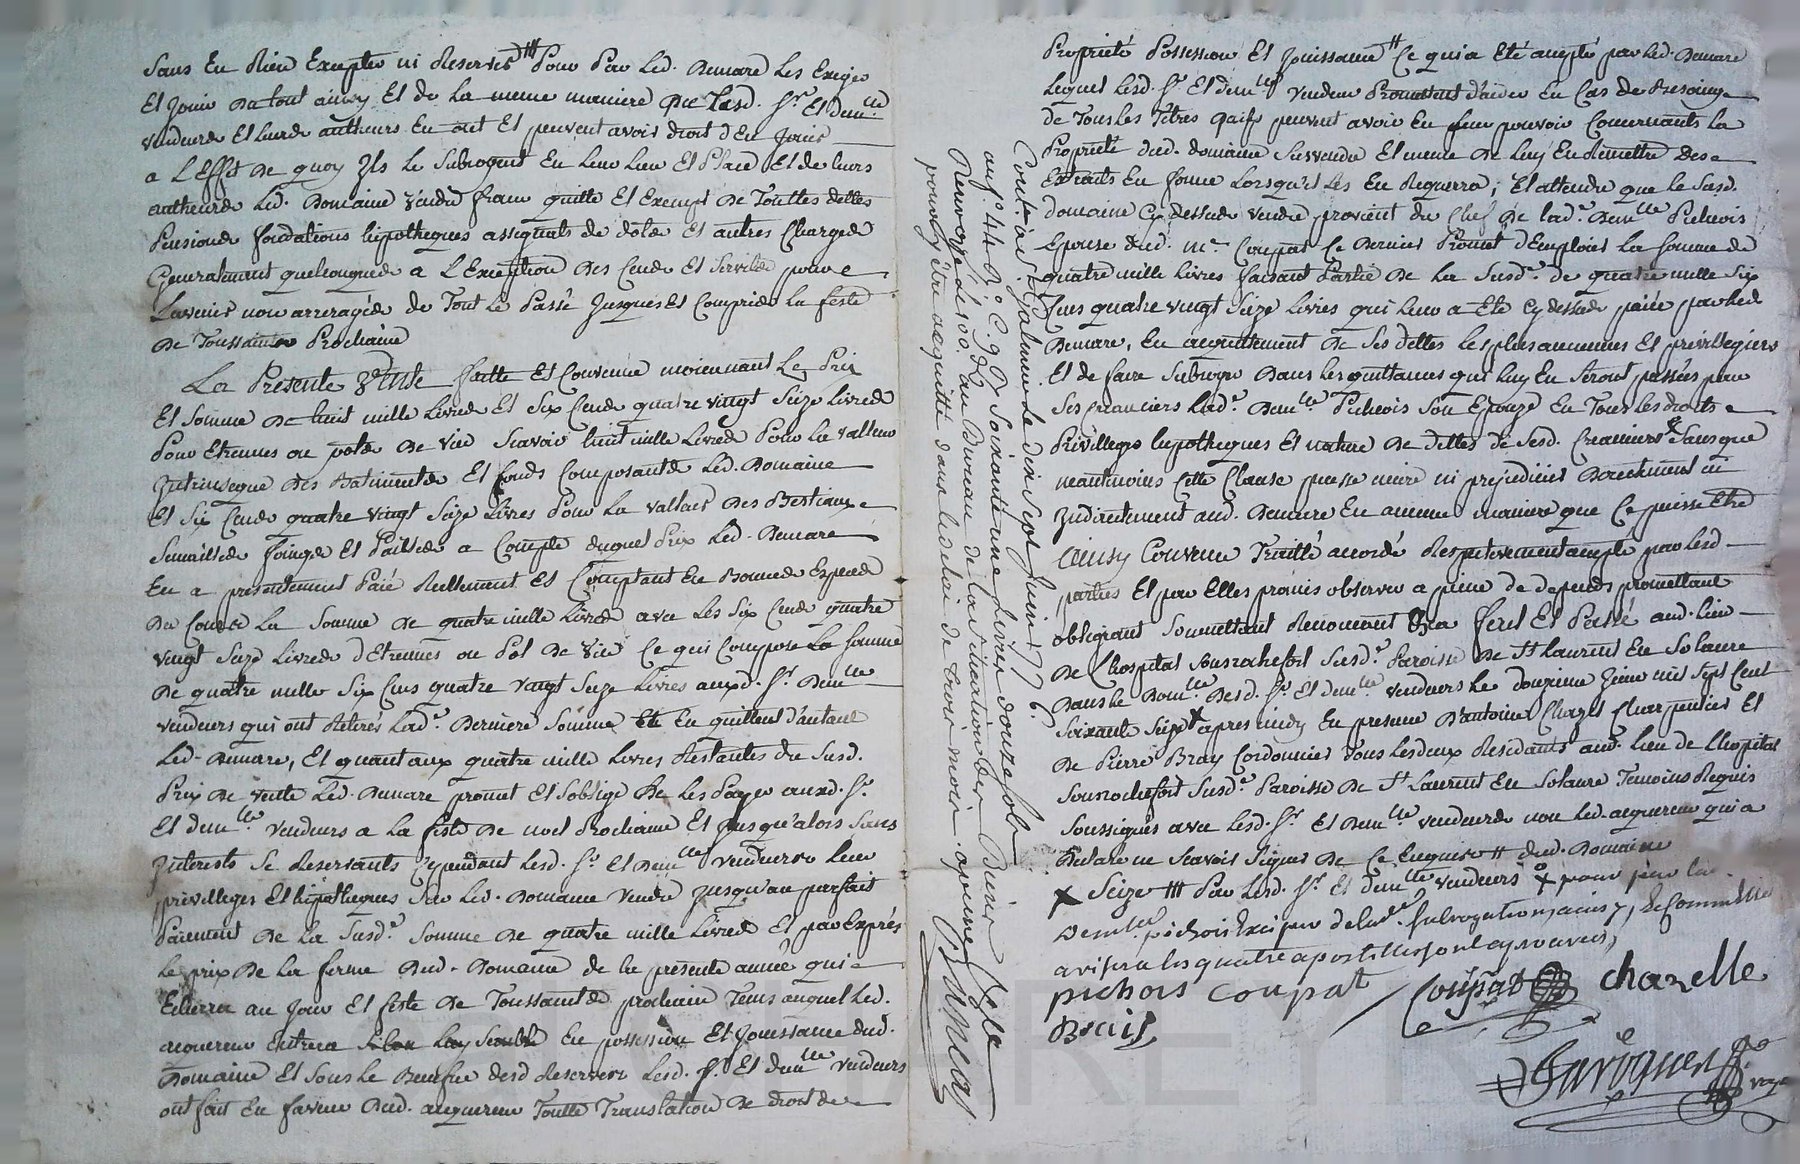 Sans En Rien Excepter ni Reserver # Pour Par Led. Demare Les Exiger
Et Jouir du tout ainsy Et de La meme maniere Que Lesd. Sr. Et demlle
vendeurs Et leurs autheurs En ont Et peuvent avoir droit d'En Jouir
a L'Effet de quoy Ils Le Subrogent En Leur Lieu Et Place Et de leurs
autheurs Led. Domaine vendu franc quitte Et Exempt De Touttes dettes
Pensions fondations hipotheques assignats de dots Et autres Charges
Generalement quelconques a L'Exception Des Cens Et Servis pour
Lavenir non arreragés de Tout Le Passé Jusques Et Compris La feste
De Toussaint Prochaine
La Presente Vente faitte Et Convenue moiennant Le Prix
Et Somme De huit mille Livres Et Six Cens quatre vingt Seize Livres
Pour Etrennes ou pots De vin Scavoir huit mille Livres Pour La valleur
Intrinseque Des Batiments Et fonds Composants Led. Domaine
Et Six Cens quatre vingt Seize Livres Pour La valleur Des Bestiaux
Semailles foings Et Pailles a Compte duquel Prix Led. Demare
En a presentement Paié Reellement Et Comptant En Bonnes Especes
De Cours La Somme De quatre mille Livres avec Les Six Cens quatre
vingt Seize Livres d'Etrennes ou Pot De Vin Ce qui Compose La Somme
De quatre mille Six Cens quatre vingt Seize Livres auxd. Sr. Demlle
vendeurs qui ont Retirés Lade. Derniere Somme Et En quittent d'autant
Led. Demare, Et quant aux quatre mille Livres Restantes du Susd.
Prix De vente Led. Demare promet Et S'oblige De Les Payer auxd. Sr.
Et demlle. vendeurs a La feste De noel Prochaine Et Jusqu'alors Sans
Interests Se Reservants Cependant Lesd. Sr. Et Demlle vendeurs Leur
privilleges Et hipotheques Sur Led. Domaine vendu Jusqu'au parfait
Paiement De La Susde. Somme De quatre mille Livres Et par Exprés
Le prix De La ferme Dud. Domaine de la presente année qui
Echerra au Jour Et feste De Toussaints prochain Tems auquel Led.
acquereur Entrera En possession Et Jouissance Dud.
Domaine Et Sous Le Benefice desd Reserves Lesd. Sr. Et Demlle vendeurs
ont fait En faveur Dud. acquereur Toutte Translation De droit de
Propriété Possession Et Jouissance # Ce qui a Eté accepté par Led. Demare
Lequel Lesd. Sr. Et demlle vendeurs Promettent d'aider En Cas De Besoing
De Tous Les Titres qu'ils peuvent avoir En leur pouvoir Concernants La
Proprieté dud. domaine Susvendu Et meme De Luy En Remettre Des
Extraits En forme Lorsqu'il Les En Requerra; Et attendu que Le Susd.
domaine Cy Dessus vendu provient du Chef De Lade. Demlle Pichois
Epouse Dud. Me. Coupat Ce Dernier Promet d'Emploier La Somme De
quatre mille Livres faisant Partie De La Susde. de quatre mille Six
Cens quatre vingt Seize Livres qui Leur a Eté Cy dessus paiée par Led
Demare, En acquittement De Ses dettes Les plus anciennes Et privillegiées
Et de faire Subroger Dans Les quittances qui Luy En Seront passées par
Ses Creanciers Lade. Demlle. Pichois Son Epouze En Tous Les droits
Privilleges hipotheques Et nature De dettes de Sesd. Creanciers Sans que
neantmoins Cette Clause puisse nuire ni prejudicier Directement ni
Indirectement aud. Demare En aucune maniere que Ce puisse Etre
ainsy Convenu Traitté accordé Respectivement accepté par Lesd
parties Et par Elles promis observer a peine de depends promettant
obligeant Soumettant Renonceant Fait Et Passé aud. Lieu
De L'hospital Sousrochefort Susde. Paroisse De St Laurent En Solaure
Dans Le Domlle Desd. Sr. Et demlle. vendeurs Le douzieme Juin mil Sept Cent
Soixante Seize apres midy En presence D'antoine Chazel Charpentier Et
De Pierre Bray Cordonnier Tous Les deux Residants aud. Lieu de L'hospital
Sousrochefort Susde. Paroisse De St Laurent En Solaure Temoins Requis
Soussignés avec Lesd. Sr. Et Demlle vendeurs non Led. acquereur qui a
Declaré ne Scavoir Signer De Ce Enquis # dud. Domaine
X Seize # Par Lesd. Sr. Et demlle vendeurs pour par la
demlle. pichois
avisera les quatre apostilles sont aprouvées
pichois coupat Coupat chazelle
Brai
Contlé a St Galmier Le dix Sept Juin 1776.
art. 44 Rc. 9 D Soixante une Livres douze sols
Renvoyé de 100. au Bureau de la situation des Biens
pour y être acquitté dans le delai de trois mois